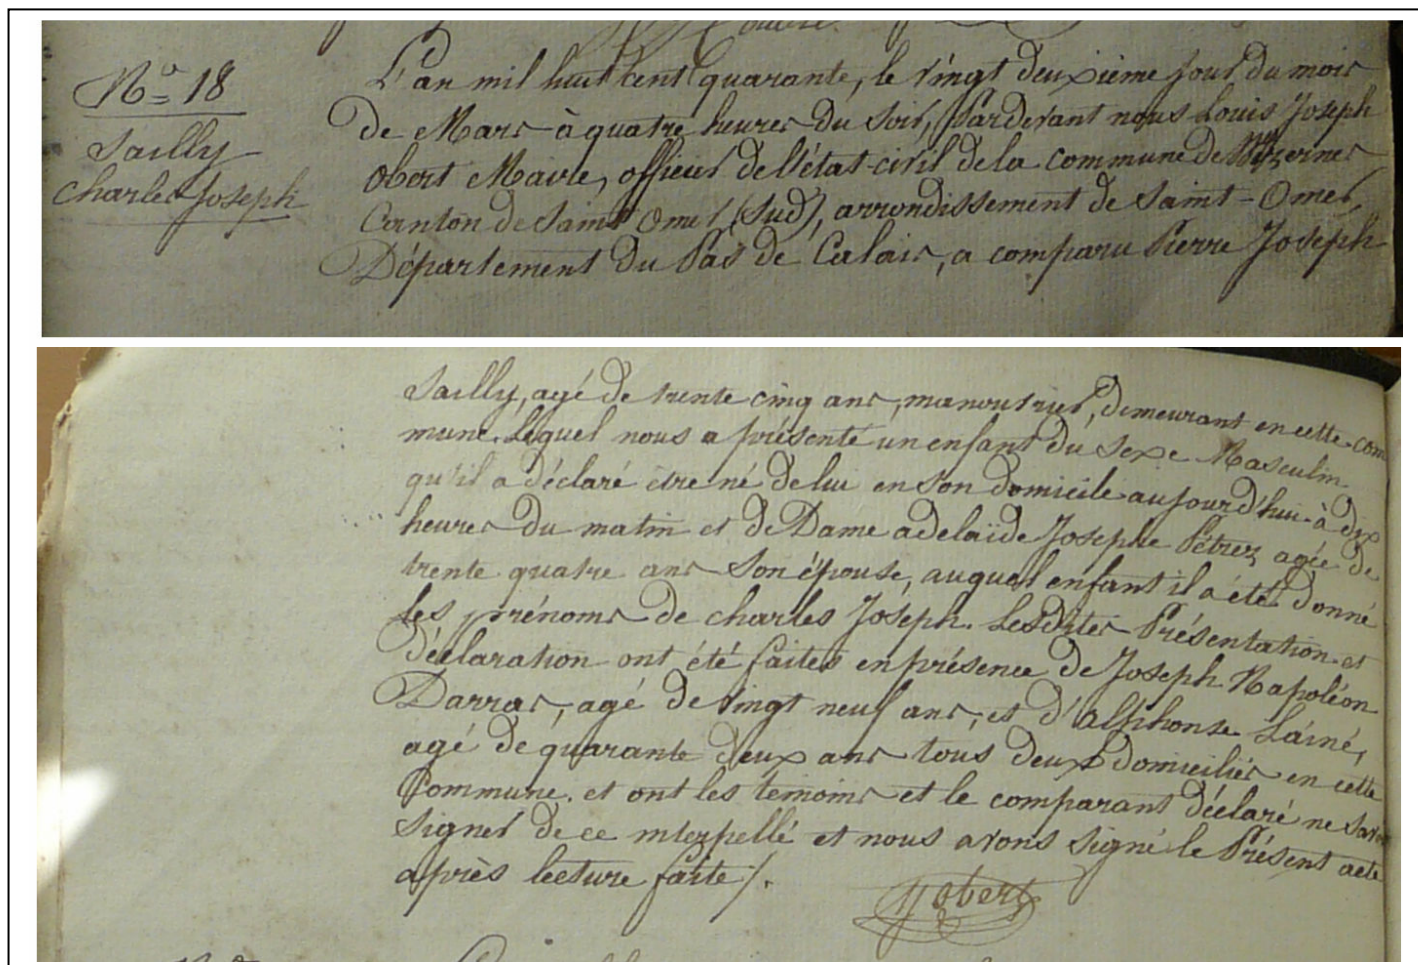 N° 18
Sailly
Charles Joseph
L'an mil huit cent quarante, le vingt deuxième jour du mois
de Mars à quatre heures du soir, Pardevant nous Louis Joseph
Obert Maire, officier de l'état-civil de la commune de Wizernes
Canton de Saint Omer (Sud), arrondissement de Saint-Omer,
Département du Pas de Calais, a comparu Pierre Joseph
Sailly, agé de trente cinq ans, manouvrier, demeurant en cette com
mune. Lequel nous a présenté un enfant du sexe Masculin
qu'il a déclaré être né de lui en son domicile aujourd'hui à dix
heures du matin et de Dame adelaïde Josephe Pétrez agée de
trente quatre ans son épouse, auquel enfant il a été donné
les prénoms de charles Joseph. Lesdites Présentation et
Déclaration ont été faites en présence de Joseph Napoléon
Darras, agé de vingt neuf ans, et d'Alphonse Lainé,
agé de quarante deux ans tous deux domiciliés en cette
Commune. et ont les témoins et le comparant déclaré ne savoir
signer de ce interpellé et nous avons signé le Présent acte
après lecture faite /.
Obert